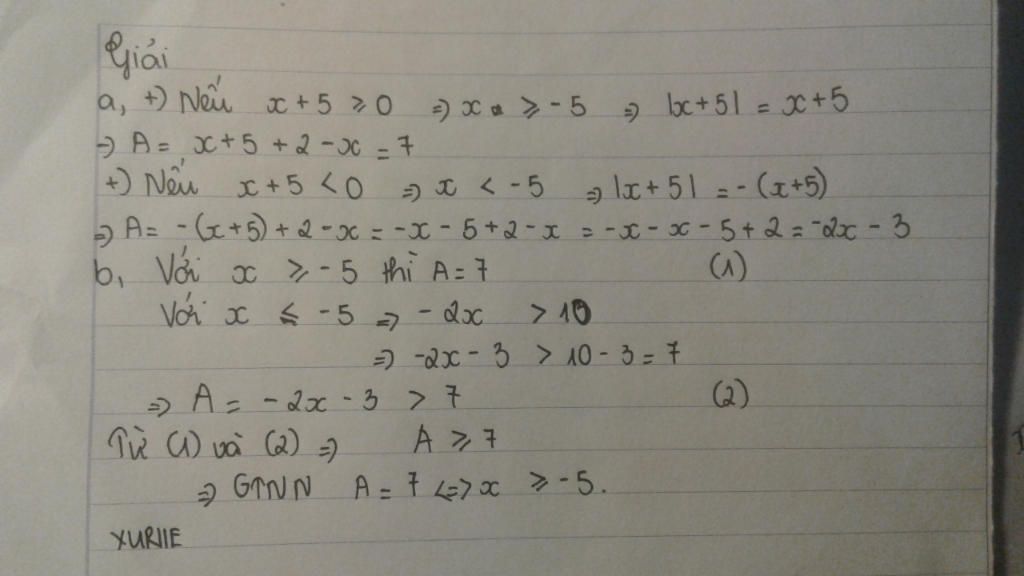 Giải
a, +) Nếu x + 5 ≥ 0 => x ≥ -5 => |x+5| = x+5
=> A = x+5 + 2 - x = 7
+) Nếu x + 5 < 0 => x < -5 => |x + 5| = -(x+5)
=> A = -(x+5) + 2 - x = -x - 5 + 2 - x = -x - x - 5 + 2 = -2x - 3
b, Với x ≥ -5 thì A = 7 (1)
Với x ≤ -5 => - 2x > 10
=> -2x - 3 > 10 - 3 = 7
=> A = - 2x - 3 > 7 (2)
Từ (1) và (2) => A ≥ 7
=> GTNN A = 7 <=> x ≥ -5.
XURIIE